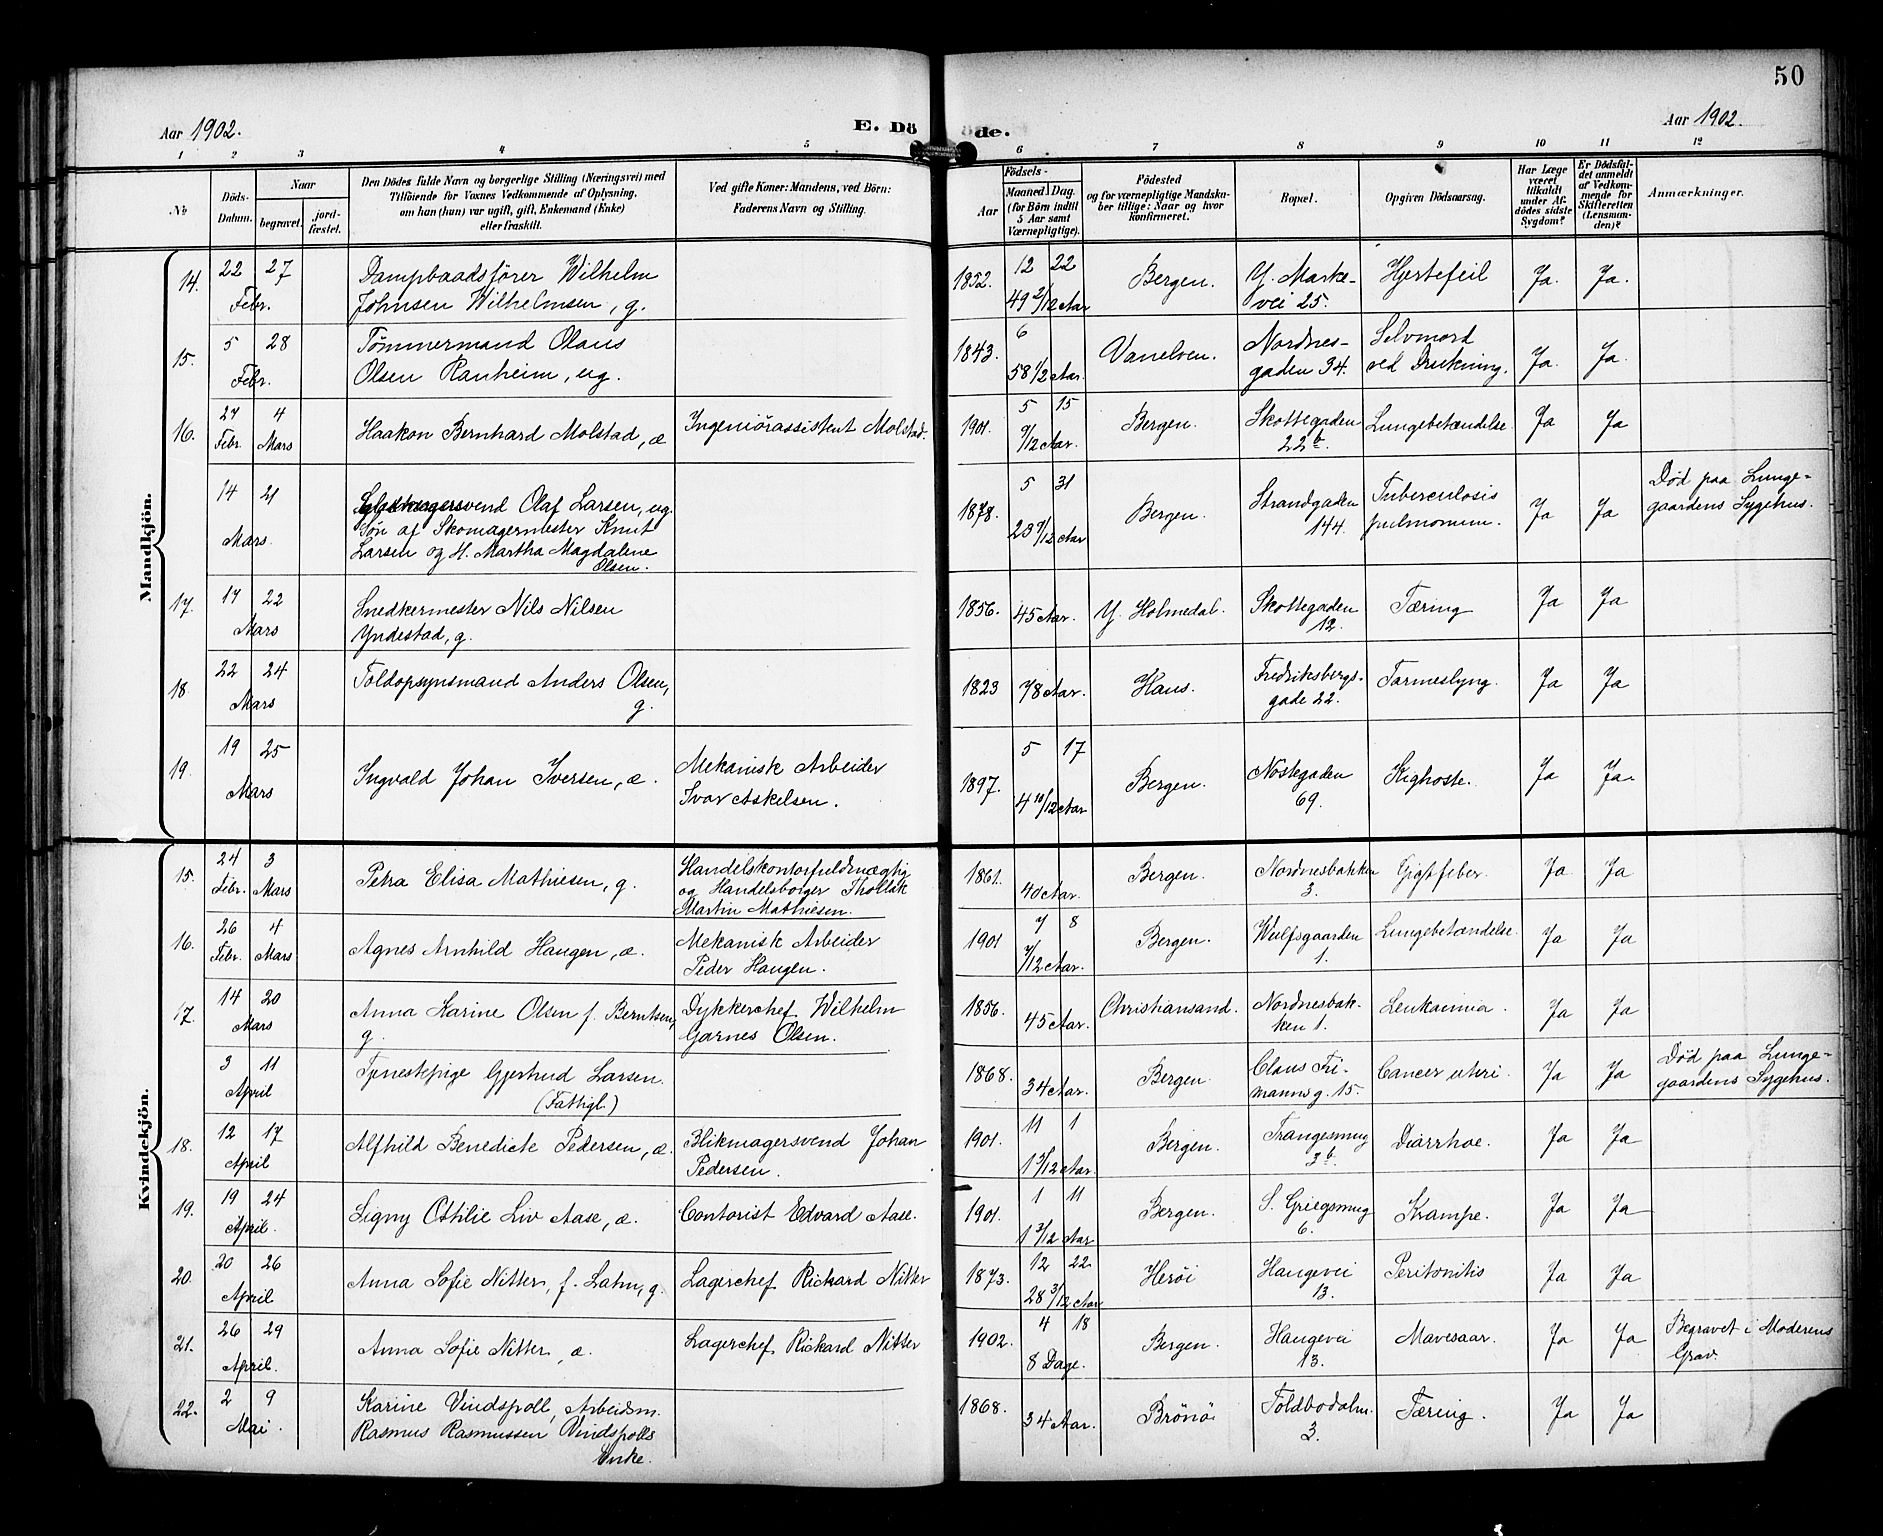 50
Aar 1902.
E. Dö
öde.
Aar 1902.
1 2 3 4 5 6 7 8 9 10 11 12
No
Döds-
Datum.
Naar
begravet.
jord-
fæstet.
Den Dödes fulde Navn og borgerlige Stilling (Næringsvei) med
Tilföiende for Voxnes Vedkommende af Oplysning,
om han (hun) var ugift, gift, Enkemand (Enke)
eller fraskilt.
Ved gifte Koner: Mandens, ved Börn:
Faderens Navn og Stilling.
Födsels-
Aar
Maaned. Dag.
(for Börn indtil
5 Aar samt
Værnepligtige).
Födested
og for værnepligtige Mandska-
ber tillige: Naar og hvor
konfirmeret.
Bopæl.
Opgiven Dödsaarsag.
Har Læge
været
tilkaldt
under Af-
dödes sidste
Sygdom?
Er Dödsfal-
det anmeldt
af Vedkom-
mende for
Skifteretten
(Lensman-
den)?
Anmærkninger.
Mandkjön.
14. 22 27 Febr.
Dampbaadsförer Wilhelm
Johnsen Wilhelmsen, g.
1852. 12 22
49 2/12 Aar
Bergen.
Y. Marke-
vei 25.
Hjertefeil
Ja. Ja.
15. 5 28 Febr.
Tømmermand Olaus
Olsen Ranheim, ug.
1843. 6
58 1/2 Aar.
Vanelven.
Nordnes-
gaden 34.
Selvmord
ved Drukning.
Ja. Ja.
16. 27 Febr. 4 Mars
Haakon Bernhard Molstad, æ
Ingeniörassistent Molstad.
1901. 5 15
9/12 Aar.
Bergen.
Skottegaden
22b.
Lungebetændelse.
Ja Ja
14 21 Mars.
Olaf Larsen, ug.
Søn af Skomagermester Knut
Larsen og H. Martha Magdalene
Olsen.
1878. 5 31
23 7/12 Aar
Bergen.
Strandgaden
144.
Tuberculosis
pulmonum.
Ja Ja
Død paa Lunge-
gaardens Sygehus.
17. 17 22 Mars
Snedkermester Nils Nilsen
Yndestad, g.
1856. 45 Aar.
Y. Holmedal.
Skottegaden
12.
Tæring
Ja Ja
18 22 24 Mars
Toldopsynsmand Anders Olsen,
g.
1823 78 Aar.
Haus.
Fredriksbergs-
gade 22.
Tarmeslyng.
Ja Ja
19. 19 25 Mars
Ingvald Johan Iversen, æ.
Mekanisk Arbeider
Ivar Askelsen.
1897. 5 17
4 10/12 Aar
Bergen.
Nøstegaden
69.
Kighoste.
Ja Ja.
Kvindekjön.
15. 24 Febr. 3 Mars
Petra Elisa Mathiesen, g.
Handelskontorfuldmægtig
og Handelsborger
Martin Mathiesen.
1861. 40 Aar.
Bergen.
Nordnesbakken
3.
Gigtfeber.
Ja Ja
16. 26 Febr. 4 Mars
Agnes Arnhild Haugen, æ.
Mekanisk Arbeider
Peder Haugen.
1901 7 8
7/12 Aar.
Bergen.
Wulfsgaarden
1.
Lungebetændelse.
Ja Ja
17. 14 20 Mars
Anna Karine Olsen f. Berntsen,
g.
Dykkerchef Wilhelm
Garnes Olsen.
1856. 45 Aar.
Christiansand.
Nordnesbak-
ken 1.
Leukaimia.
Ja Ja
3 11 April
Tjenestepige Gjertrud Larsen.
(Fattigl.)
1868. 34 Aar.
Bergen.
Claus Fri-
mannsg. 15.
Cancer uteri.
Ja Ja
Død paa Lunge-
gaardens Sygehus.
18. 12 17 April
Alfhild Benedicte Pedersen, æ.
Blikmagersvend Johan
Pedersen.
1901. 11 1
1 3/12 Aar.
Bergen.
Trangesmug
3b.
Diarrhoe.
Ja Ja
19. 19 24 April.
Signy Othilie Liv Aase, æ.
Contorist Edvard Aase.
1901. 1 11
1 3/12 Aar
Bergen.
S. Griegsmug
6.
Krampe.
Ja Ja
20. 20 26 April
Anna Sofie Nitter, f. Lahn, g.
Lagerchef Rickard Nitter
1873. 12 22
28 3/12 Aar
Herøi
Haugevei
13.
Peritonitis
Ja Ja
21. 26 29 April.
Anna Sofie Nitter, æ.
Lagerchef Rickard Nitter
1902. 4 18
8 Dage.
Bergen.
Haugevei
13.
Mavesaar.
Ja Ja
Begravet i Moderens
Grav.
22. 2 9 Mai.
Karine Vindspoll, Arbeidsm.
Rasmus Rasmussen Vindspolls
Enke.
1868. 34 Aar.
Brönö
Toldbodalm.
3.
Tæring.
Ja Ja